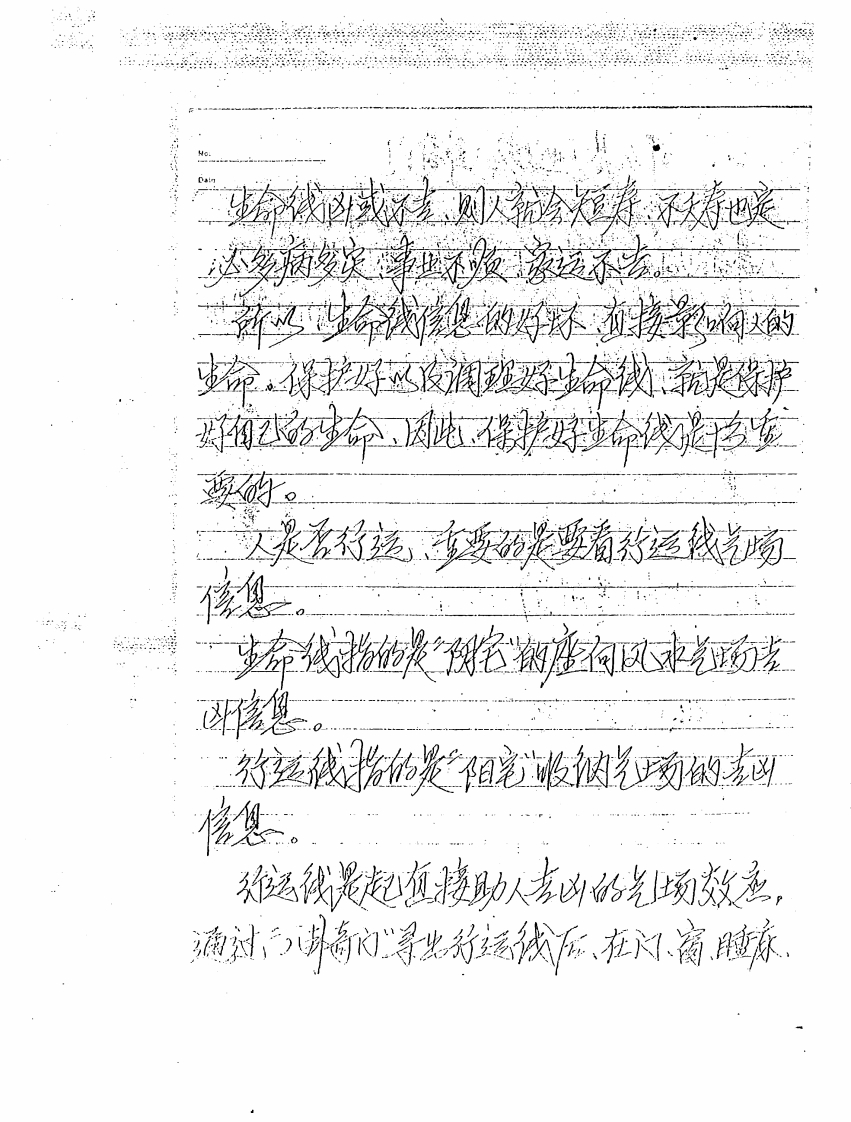 No.
Date
生命线凶或不吉、则人就会短寿、不夭寿也定
必多病多灾、事业不顺、家运不吉。
所以、生命线信息的好坏、直接影响人的
生命。保护好以及调理好生命线、就是保护
好自己的生命、因此、保护好生命线是十分重
要的。
人是否行运、重要的是要看行运线气场
信息。
生命线指的是“阴宅”的座向风水气场吉
凶信息。
行运线指的是“阳宅”吸纳气场的吉凶
信息。
行运线是起直接助人吉凶的气场效应,
通过、“八卦奇门”寻出行运线后、在门、窗、睡床、